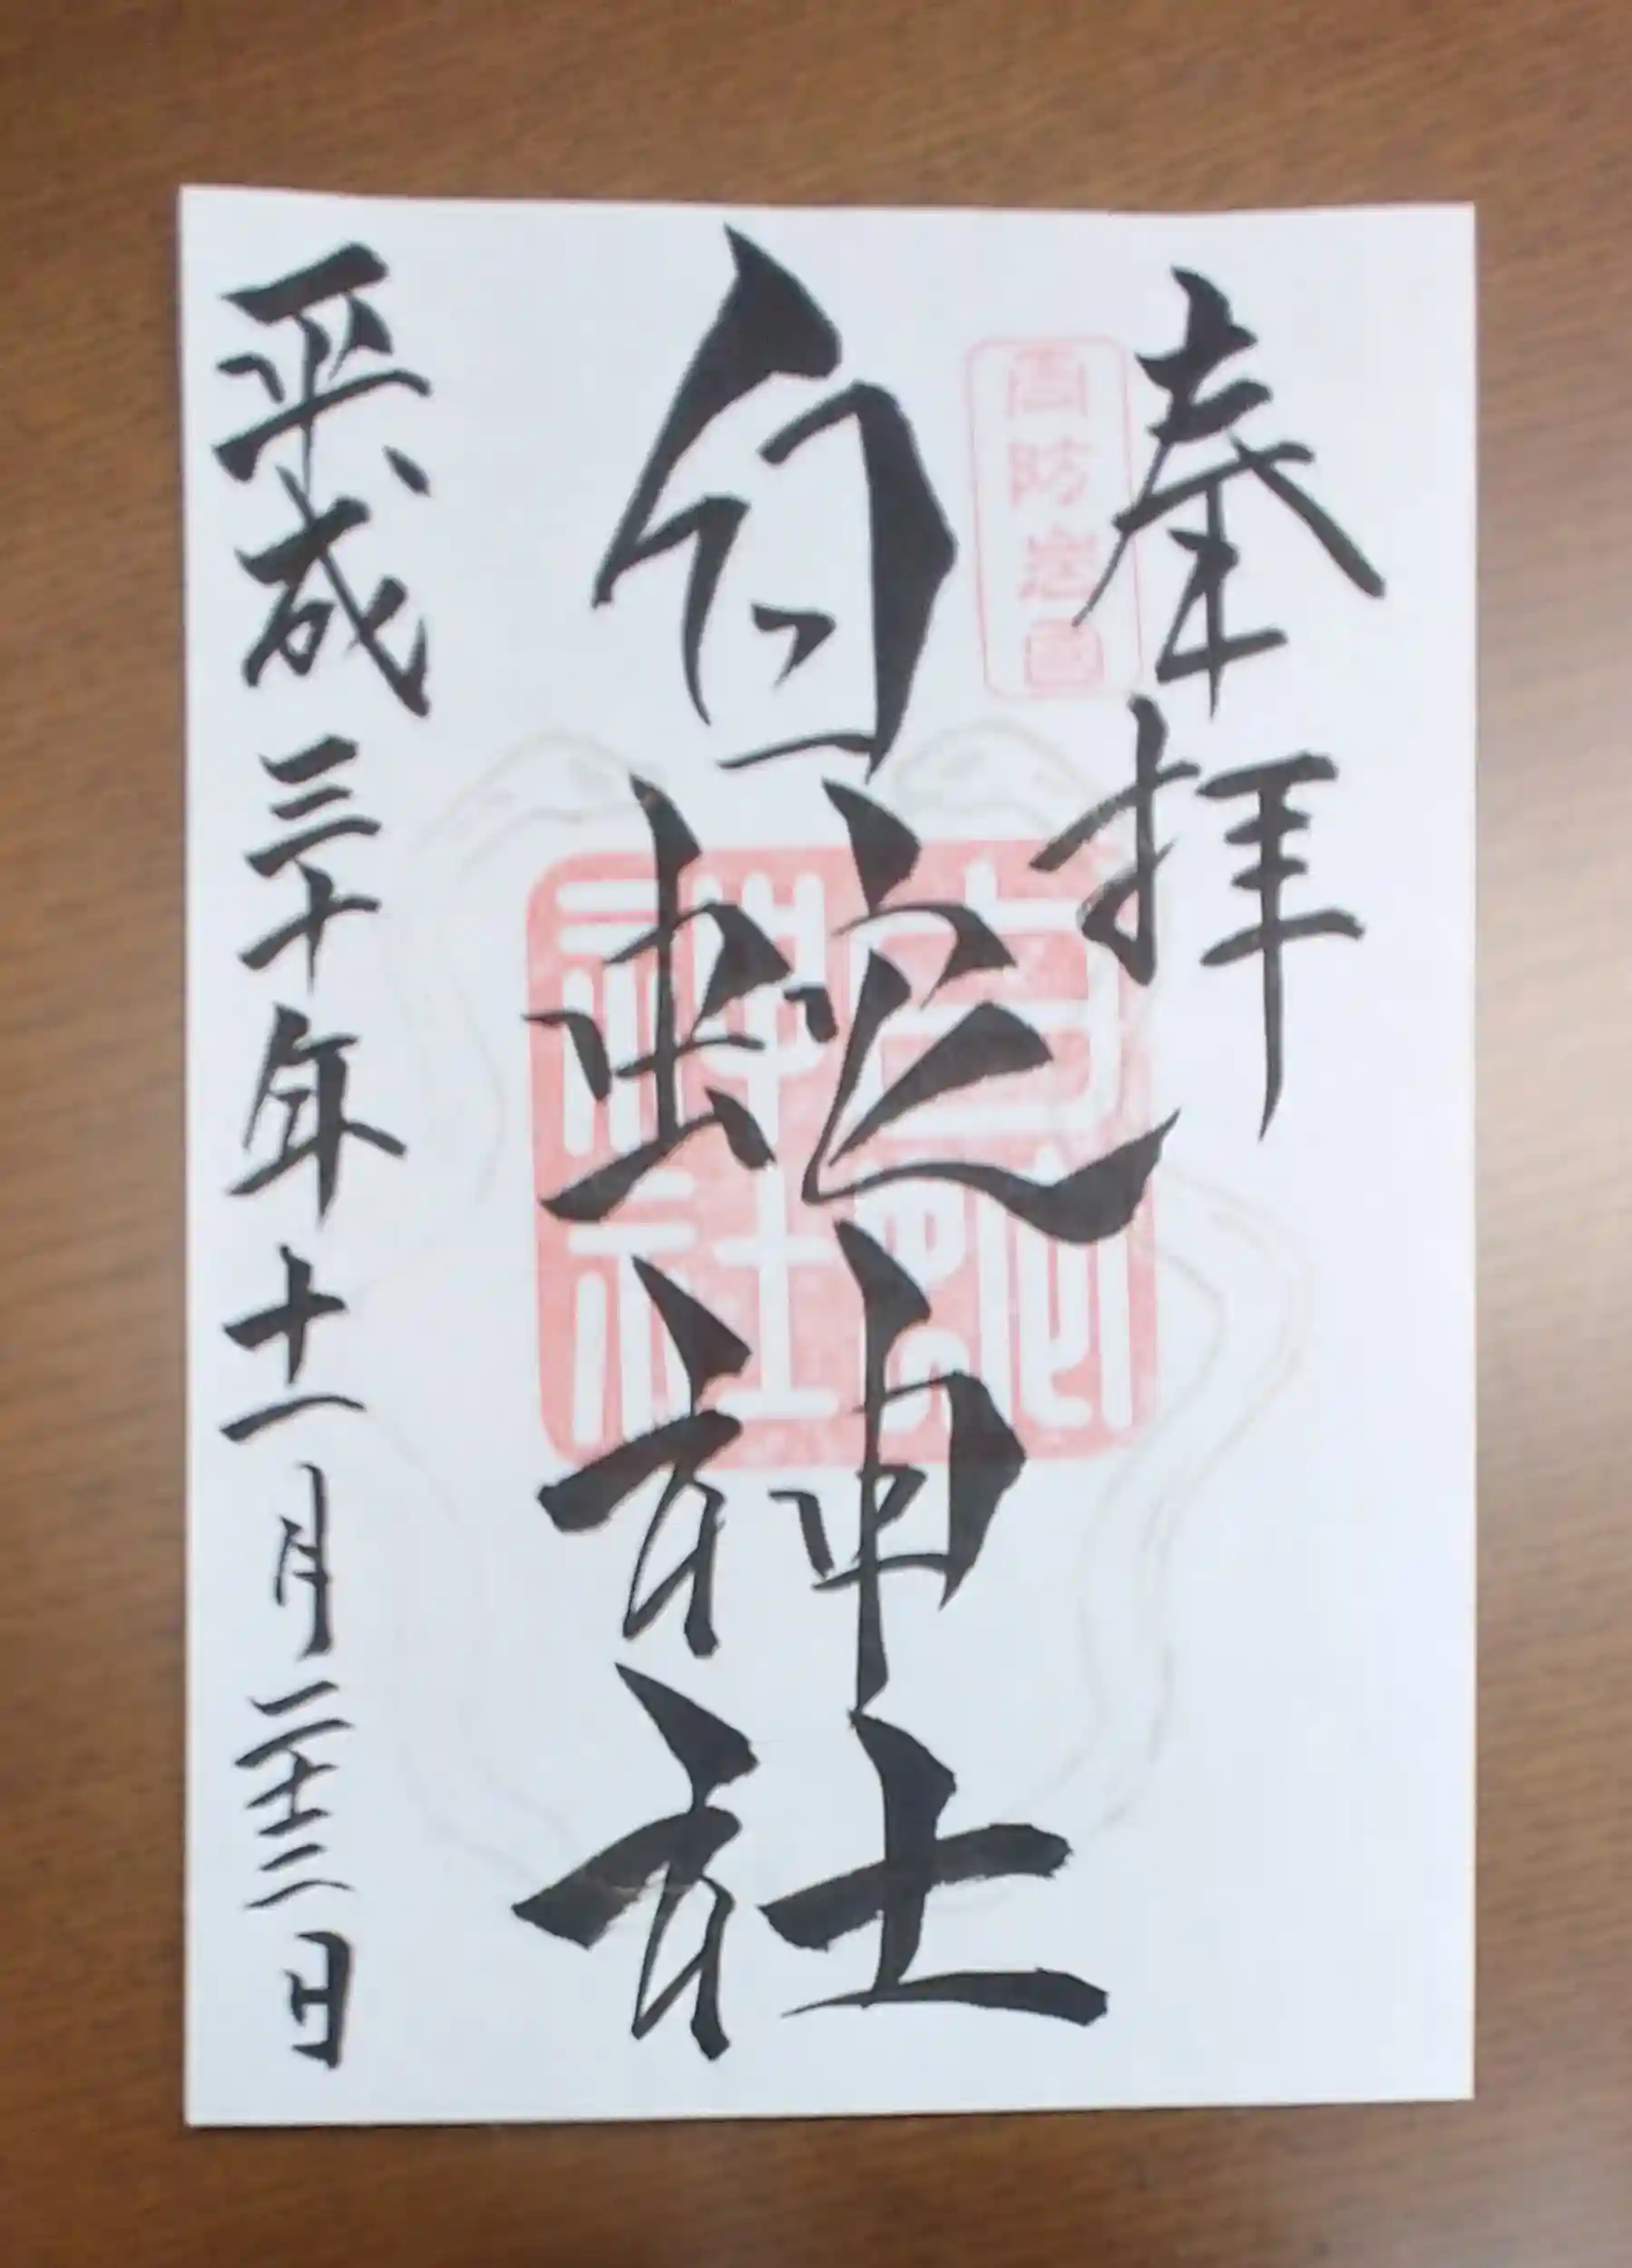 奉拝
周防岩国
白蛇神社
白蛇神社
平成三十年十一月二十三日